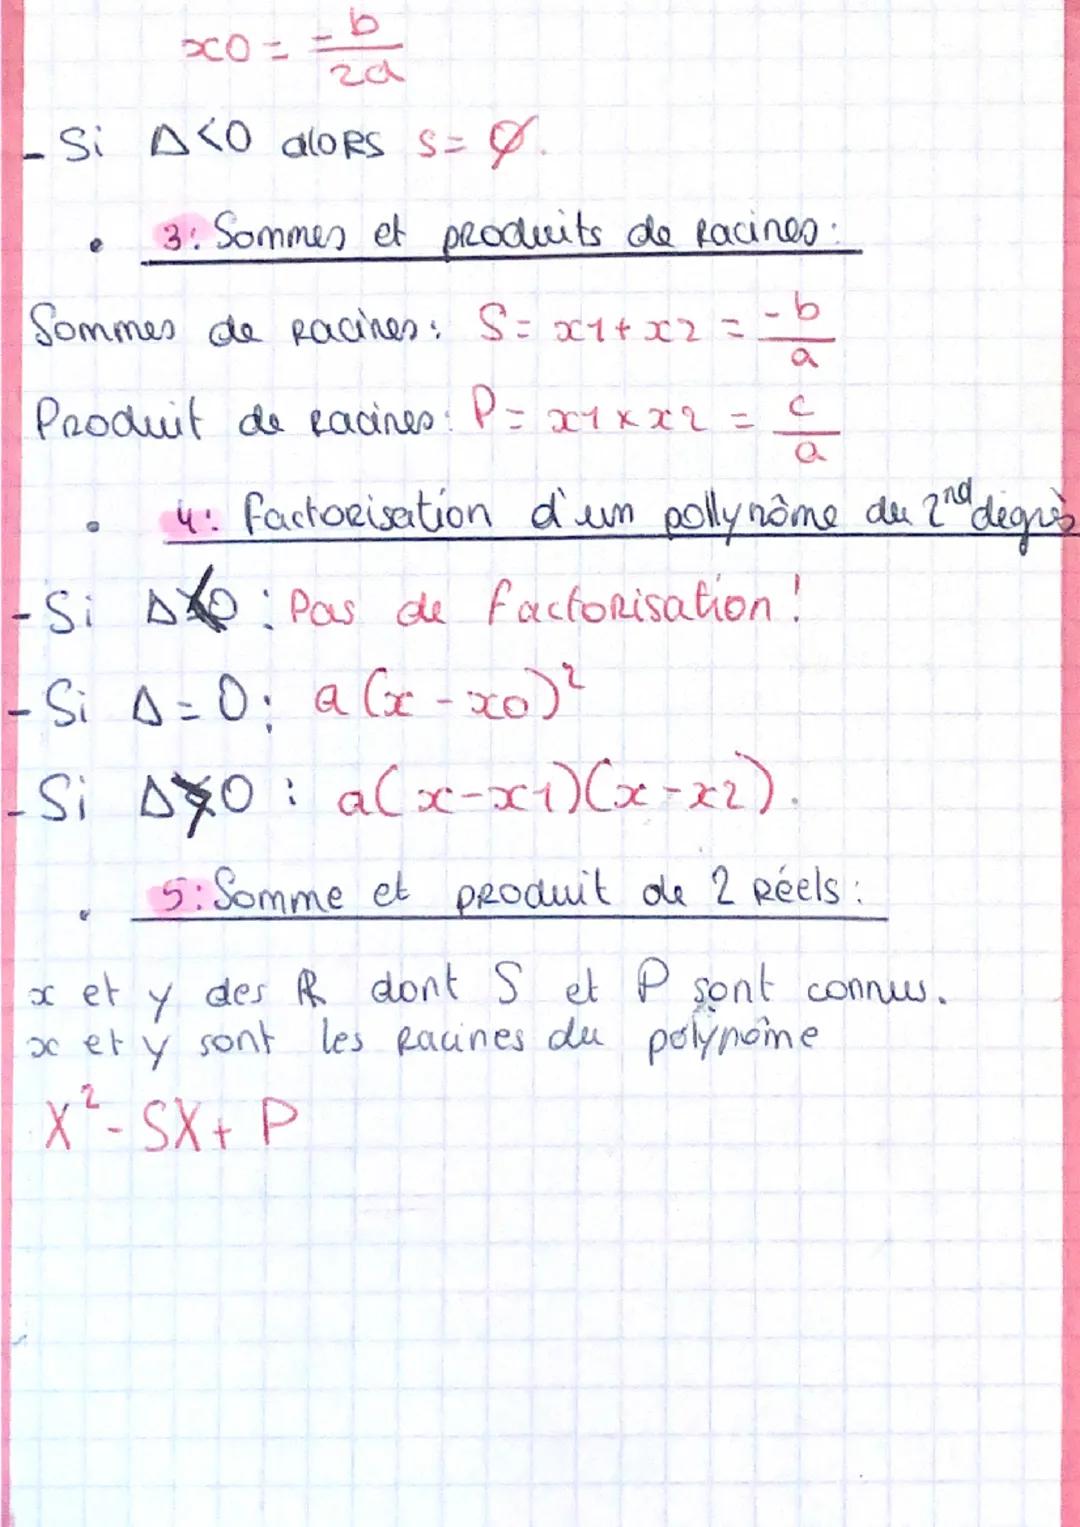 x0 = -b/2a
- Si Δ<0 alors S= Ø.
• 3: Sommes et produits de racines:
Sommes de racines: S= x1+x2 = -b/a
Produit de racines: P= x1×x2 = c/a
• 4: factorisation d'un pollynôme du 2nd degrès
- Si Δ<0 : Pas de factorisation!
- Si Δ=0: a(x-x0)²
- Si Δ>0 : a(x-x1)(x-x2).
• 5: Somme et produit de 2 Réels:
x et y des ℝ dont S et P sont connus.
x et y sont les racines du polynôme
X²- SX+ P